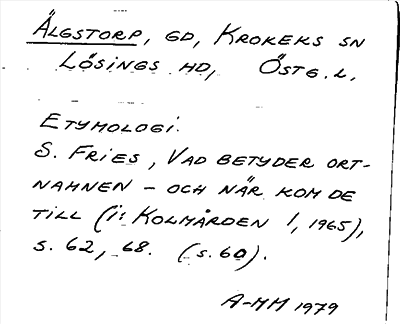 ÄLGSTORP, GD, KROKEKS SN
LÖSINGS HD, ÖSTG. L.
ETYMOLOGI.
S. FRIES, VAD BETYDER ORT-
NAMNEN – OCH NÄR KOM DE
TILL (I: KOLMÅRDEN 1, 1965),
S. 62, 68. (S. 60).
A-MM 1979